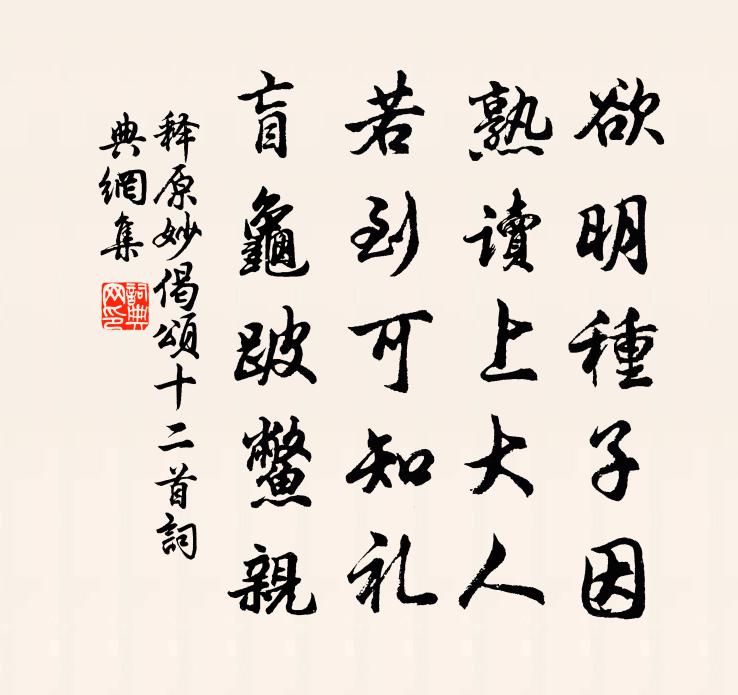 欲明種子因
熟讀上大人
若到可知礼
盲龜跛鱉親
释原妙偈頌十二首詞
典網集
詞典
网印